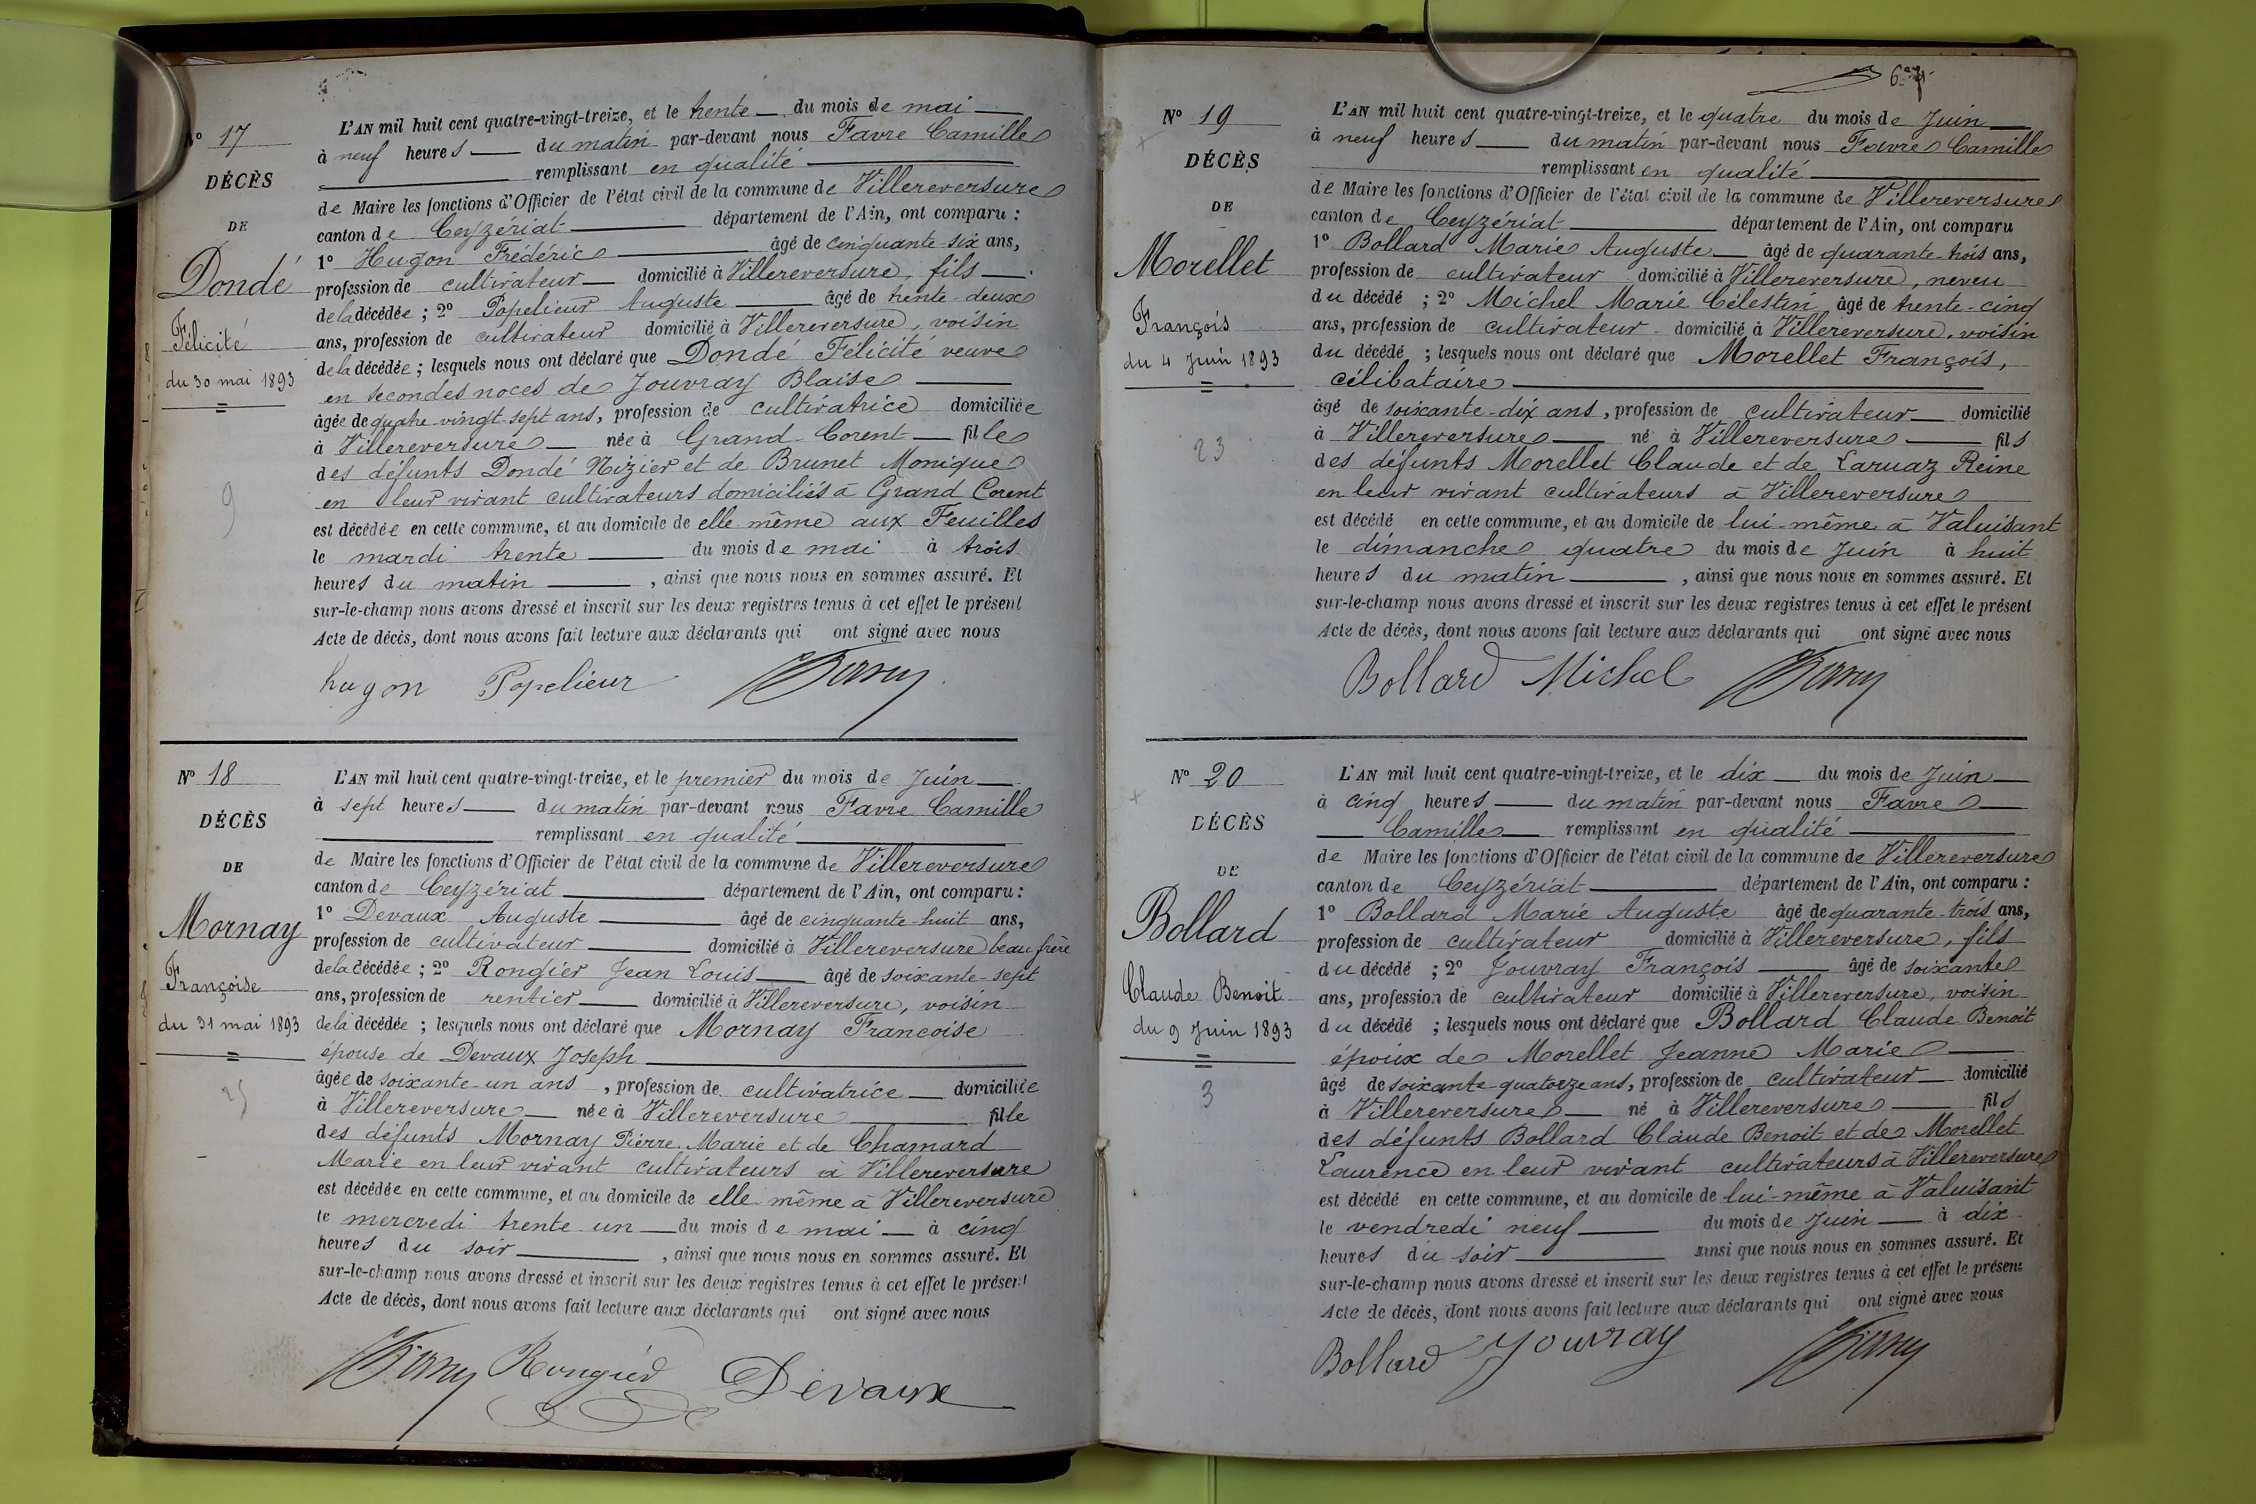 N° 17
DÉCÈS
DE
Dondé
Félicité
du 30 mai 1893
9
L'AN mil huit cent quatre-vingt-treize, et le trente du mois de mai
à neuf heures du matin par-devant nous Favre Camille
remplissant en qualité
de Maire les fonctions d'Officier de l'état civil de la commune de Villereversure
canton de Ceyzériat département de l'Ain, ont comparu :
1° Hugon Frédéric âgé de cinquante-six ans,
profession de cultivateur domicilié à Villereversure, fils
de la décédée ; 2° Popelieur Auguste âgé de trente-deux
ans, profession de cultivateur domicilié à Villereversure, voisin
de la décédée ; lesquels nous ont déclaré que Dondé Félicité veuve
en secondes noces de Jouvray Blaise
âgée de quatre-vingt-sept ans, profession de cultivatrice domiciliée
à Villereversure née à Grand-Corent fille
des défunts Dondé Nizier et de Brunet Monique
en leur vivant cultivateurs domiciliés à Grand Corent
est décédée en cette commune, et au domicile de elle même aux Feuilles
le mardi trente du mois de mai à trois
heures du matin , ainsi que nous nous en sommes assuré. Et
sur-le-champ nous avons dressé et inscrit sur les deux registres tenus à cet effet le présent
Acte de décès, dont nous avons fait lecture aux déclarants qui ont signé avec nous
hugon Popelieur
N° 18
DÉCÈS
DE
Mornay
Françoise
du 31 mai 1893
25
L'AN mil huit cent quatre-vingt-treize, et le premier du mois de Juin
à sept heures du matin par-devant nous Favre Camille
remplissant en qualité
de Maire les fonctions d'Officier de l'état civil de la commune de Villereversure
canton de Ceyzériat département de l'Ain, ont comparu :
1° Devaux Auguste âgé de cinquante-huit ans,
profession de cultivateur domicilié à Villereversure beau frère
de la décédée ; 2° Rongier Jean Louis âgé de soixante-sept
ans, profession de rentier domicilié à Villereversure, voisin
de la décédée ; lesquels nous ont déclaré que Mornay Francoise
épouse de Devaux Joseph
âgée de soixante-un ans , profession de cultivatrice domiciliée
à Villereversure née à Villereversure fille
des défunts Mornay Pierre Marie et de Chamard
Marie en leur vivant cultivateurs à Villereversure
est décédée en cette commune, et au domicile de elle même à Villereversure
le mercredi trente un du mois de mai à cinq
heures du soir , ainsi que nous nous en sommes assuré. Et
sur-le-champ nous avons dressé et inscrit sur les deux registres tenus à cet effet le présent
Acte de décès, dont nous avons fait lecture aux déclarants qui ont signé avec nous
Rongier Devaux
N° 19
DÉCÈS
DE
Morellet
François
du 4 Juin 1893
23
L'AN mil huit cent quatre-vingt-treize, et le quatre du mois de Juin
à neuf heures du matin par-devant nous Favre Camille
remplissant en qualité
de Maire les fonctions d'Officier de l'état civil de la commune de Villereversure
canton de Ceyzériat département de l'Ain, ont comparu
1° Bollard Marie Auguste âgé de quarante-trois ans,
profession de cultivateur domicilié à Villereversure, neveu
du décédé ; 2° Michel Marie Célestin âgé de trente-cinq
ans, profession de cultivateur domicilié à Villereversure, voisin
du décédé ; lesquels nous ont déclaré que Morellet François,
célibataire
âgé de soixante-dix ans, profession de cultivateur domicilié
à Villereversure né à Villereversure fils
des défunts Morellet Claude et de Laruaz Reine
en leur vivant cultivateurs à Villereversure
est décédé en cette commune, et au domicile de lui-même à Valuisant
le dimanche quatre du mois de Juin à huit
heures du matin , ainsi que nous nous en sommes assuré. Et
sur-le-champ nous avons dressé et inscrit sur les deux registres tenus à cet effet le présent
Acte de décès, dont nous avons fait lecture aux déclarants qui ont signé avec nous
Bollard Michel
N° 20
DÉCÈS
DE
Bollard
Claude Benoit
du 9 Juin 1893
3
L'AN mil huit cent quatre-vingt-treize, et le dix du mois de Juin
à cinq heures du matin par-devant nous Favre
Camille remplissant en qualité
de Maire les fonctions d'Officier de l'état civil de la commune de Villereversure
canton de Ceyzériat département de l'Ain, ont comparu :
1° Bollard Marie Auguste âgé de quarante-trois ans,
profession de cultivateur domicilié à Villereversure, fils
du décédé ; 2° Jouvray François âgé de soixante
ans, profession de cultivateur domicilié à Villereversure, voisin
du décédé ; lesquels nous ont déclaré que Bollard Claude Benoit
époux de Morellet Jeanne Marie
âgé de soixante-quatorze ans, profession de cultivateur domicilié
à Villereversure né à Villereversure fils
des défunts Bollard Claude Benoit et de Morellet
Laurence en leur vivant cultivateurs à Villereversure
est décédé en cette commune, et au domicile de lui-même à Valuisant
le vendredi neuf du mois de Juin à dix
heures du soir ainsi que nous nous en sommes assuré. Et
sur-le-champ nous avons dressé et inscrit sur les deux registres tenus à cet effet le présent
Acte de décès, dont nous avons fait lecture aux déclarants qui ont signé avec nous
Bollard Jouvray